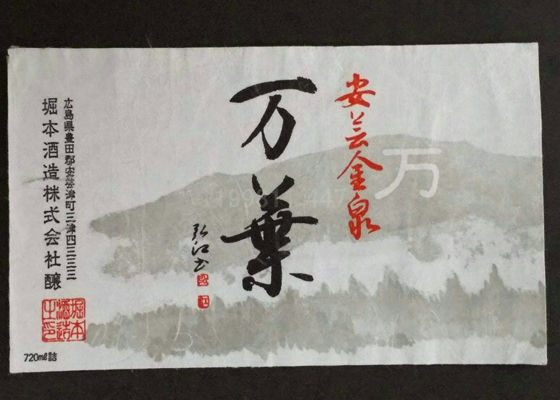 安芸金泉
万
万葉
弘江书
広島県豊田郡安芸津町三津四三三三
堀本酒造株式会社醸
堀本
酒造
之印
720mℓ詰